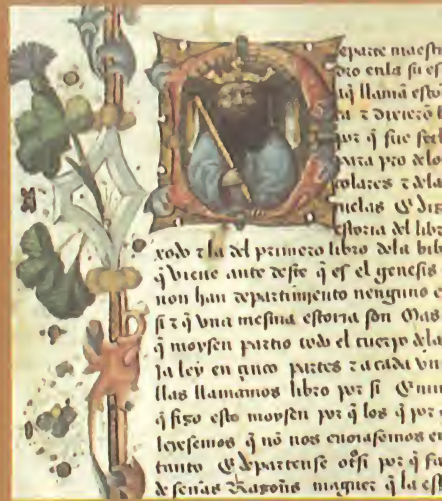 eparte maestr
dro enla su es
q̃ llamã esto
a ⁊ diziero l
por q̃ fue fec
para pro delo
colares ⁊ dela
uelas E diz
estoria del libr
xodo ⁊ la del primero libro dela bib
q̃ viene ante deste q̃ es el genesis
non han departimento nenguno e
si ⁊ q̃ vna mesma estoria son Mas
q̃ moysen partio todo el cuerpo dela
ja ley en çinco partes ⁊ a cada vn
llas llamamos libro por si E
q̃ fizo esto moysen por q̃ los q̃ por
leyesemos q̃ nõ nos enojasemos en
tanto E departense otsi por q̃ fa
de señas Razoñs maguer q̃ la est